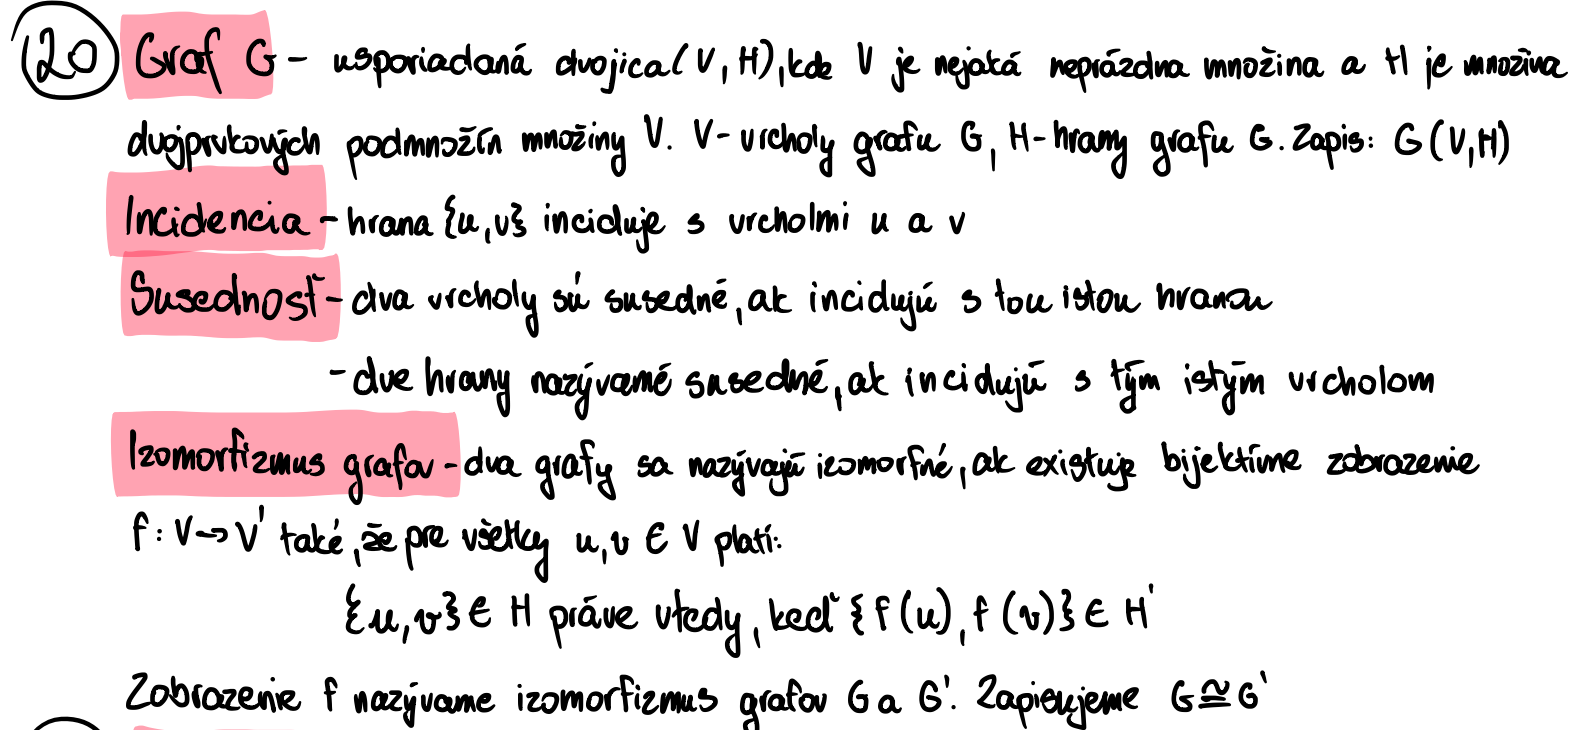 120 Graf G - usporiadaná dvojica (V, H), kde V je nejaká neprázdna množina a H je množina
dvojprvkových podmnožín množiny V. V - vrcholy grafu G, H - hrany grafu G. Zapis: G(V,H)
Incidencia - hrana {u,v} inciduje s vrcholmi u a v
Susednosť - dva vrcholy sú susedné, ak incidujú s tou istou hranou
- dve hrany nazývamé susedné, ak incidujú s tým istým vrcholom
Izomorfizmus grafov - dva grafy sa nazývajú izomorfné, ak existuje bijektívne zobrazenie
f: V → V' také, že pre všetky u, v ∈ V platí:
{u,v} ∈ H práve vtedy, keď {f(u), f(v)} ∈ H'
Zobrazenie f nazývame izomorfizmus grafov G a G'. Zapisujeme G ≅ G'